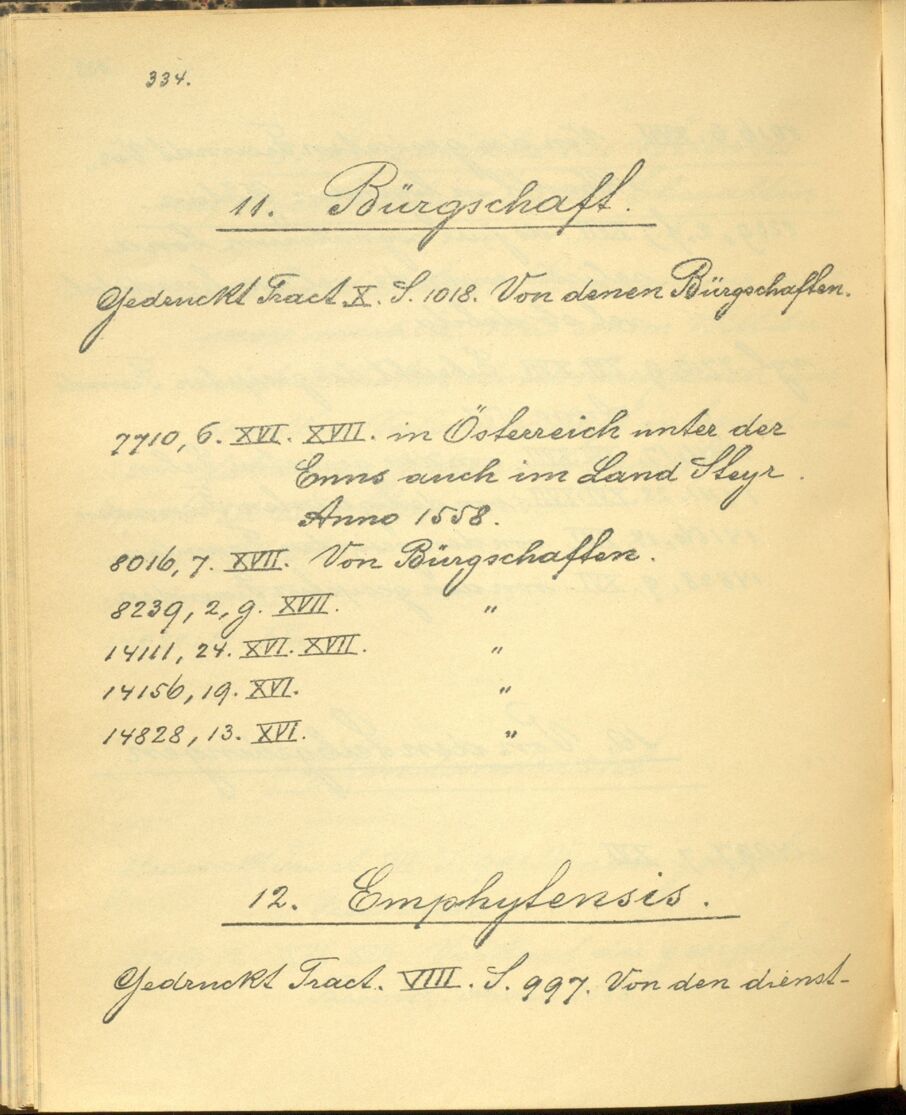 334.
11. Bürgschaft.
Gedruckt Tract. X. S. 1018. Von denen Bürgschaften.
7710, 6. XVI. XVII. in Österreich unter der
Enns auch im Land Steyr.
Anno 1558.
8016, 7. XVII. Von Bürgschaften.
8239, 2, g. XVII. "
14111, 24. XVI. XVII. "
14156, 19. XVI. "
14828, 13. XVI. "
12. Emphytensis.
Gedruckt Tract. VIII. S. 997. Von den dienst-